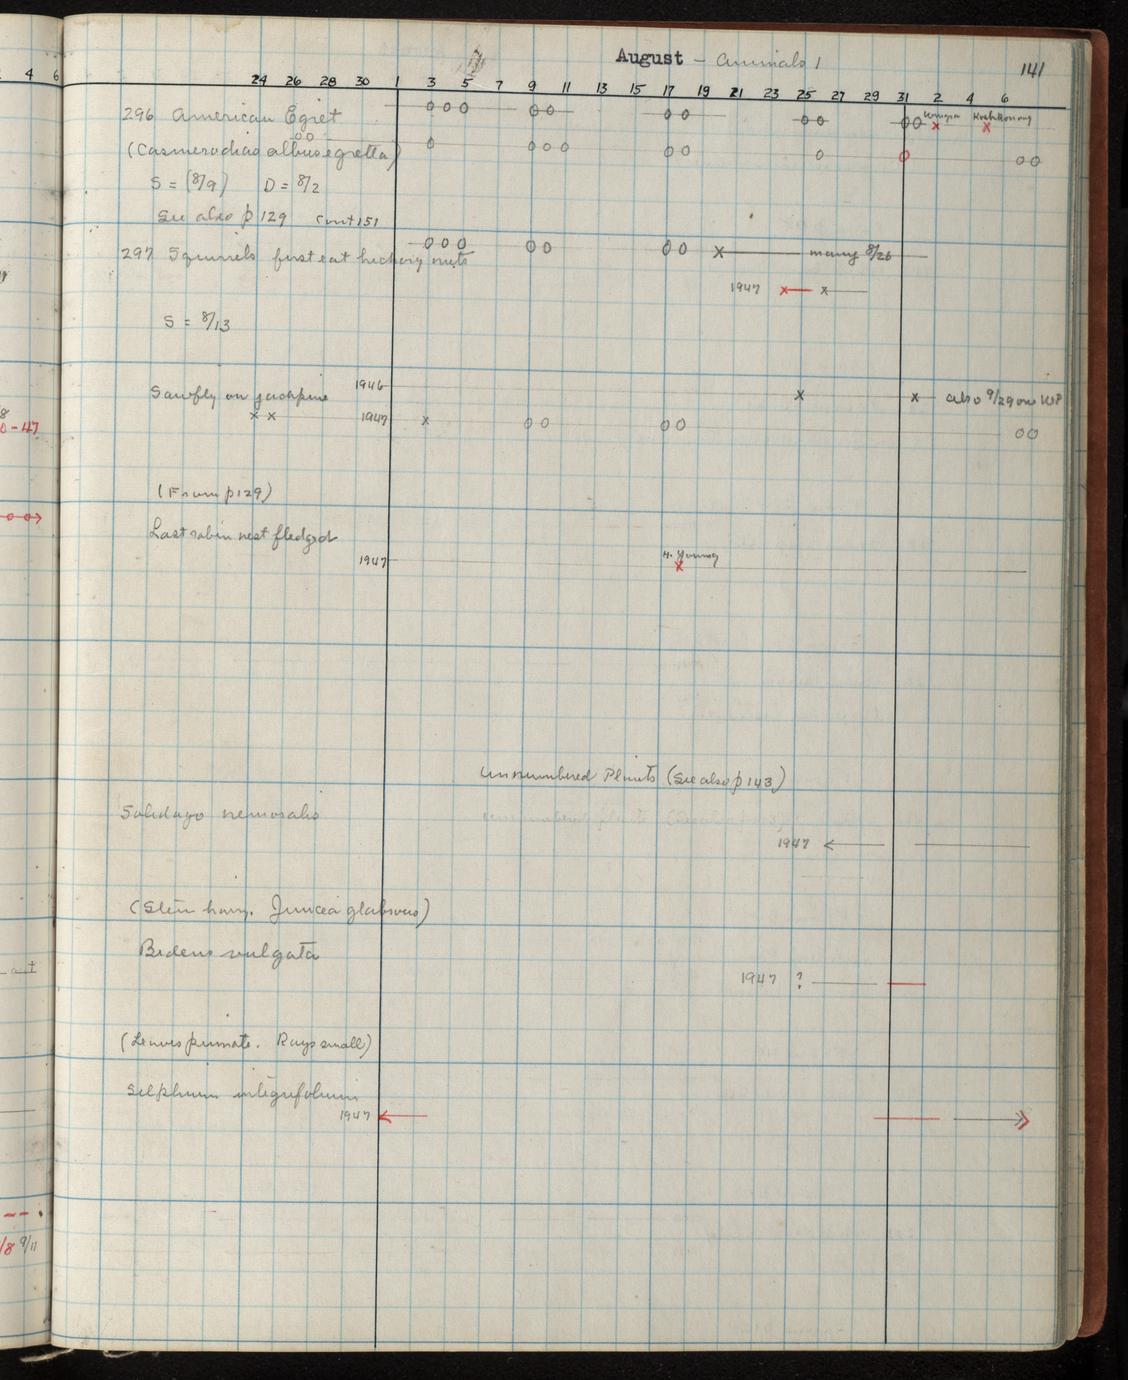 August - Animals 1
141
4 6
24 26 28 30 1 3 5 7 9 11 13 15 17 19 21 23 25 27 29 31 2 4 6
296 American Egret
Koshkonong
(Casmerodias albus egretta)
S = (8/9) D = 8/2
See also p 129 Cont 151
297 Squirrels first eat hickory nuts
many 8/26
1947
S = 8/13
1946
Sawfly on jackpine
also 9/29 on WP
1947
0-47
(From p129)
Last robin nest fledged
H. Young
1947
Unnumbered Plants (See also p 143)
Solidago nemoralis
1947
(Stem hairy. Juncea glabrous)
Bidens vulgata
1947 ?
(Leaves pinnate. Rays small)
Silphium integrifolium
1947
/8 9/11